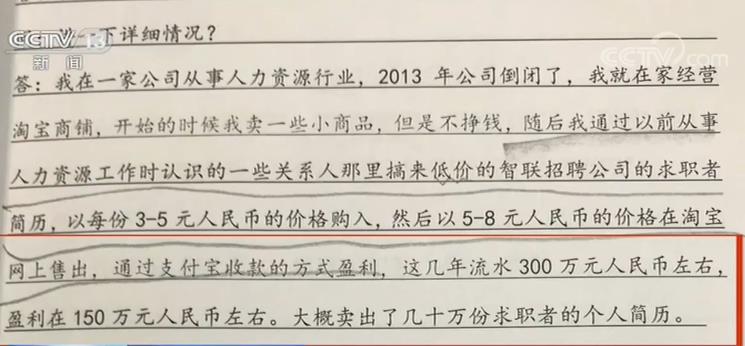 CCTV 13
新闻
CCTV.com
一下详细情况?
答:我在一家公司从事人力资源行业,2013 年公司倒闭了,我就在家经营
淘宝商铺,开始的时候我卖一些小商品,但是不挣钱,随后我通过以前从事
人力资源工作时认识的一些关系人那里搞来低价的智联招聘公司的求职者
简历,以每份 3-5 元人民币的价格购入,然后以 5-8 元人民币的价格在淘宝
网上售出,通过支付宝收款的方式盈利,这几年流水 300 万元人民币左右,
盈利在 150 万元人民币左右。大概卖出了几十万份求职者的个人简历。